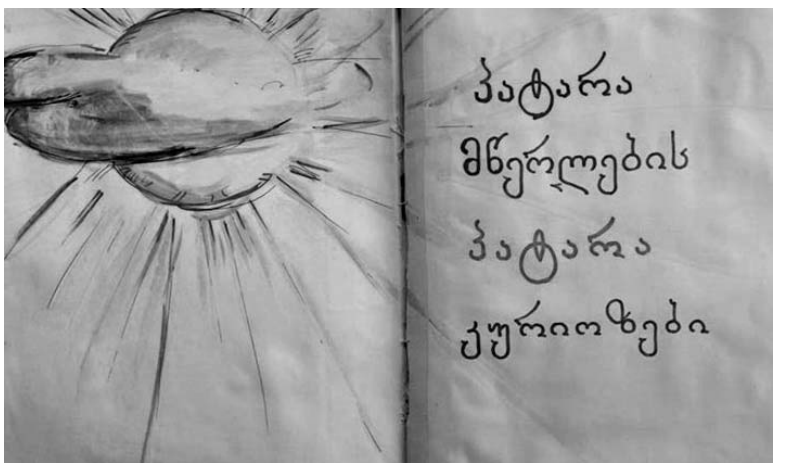 პატარა
მწერლების
პატარა
კურიოზები